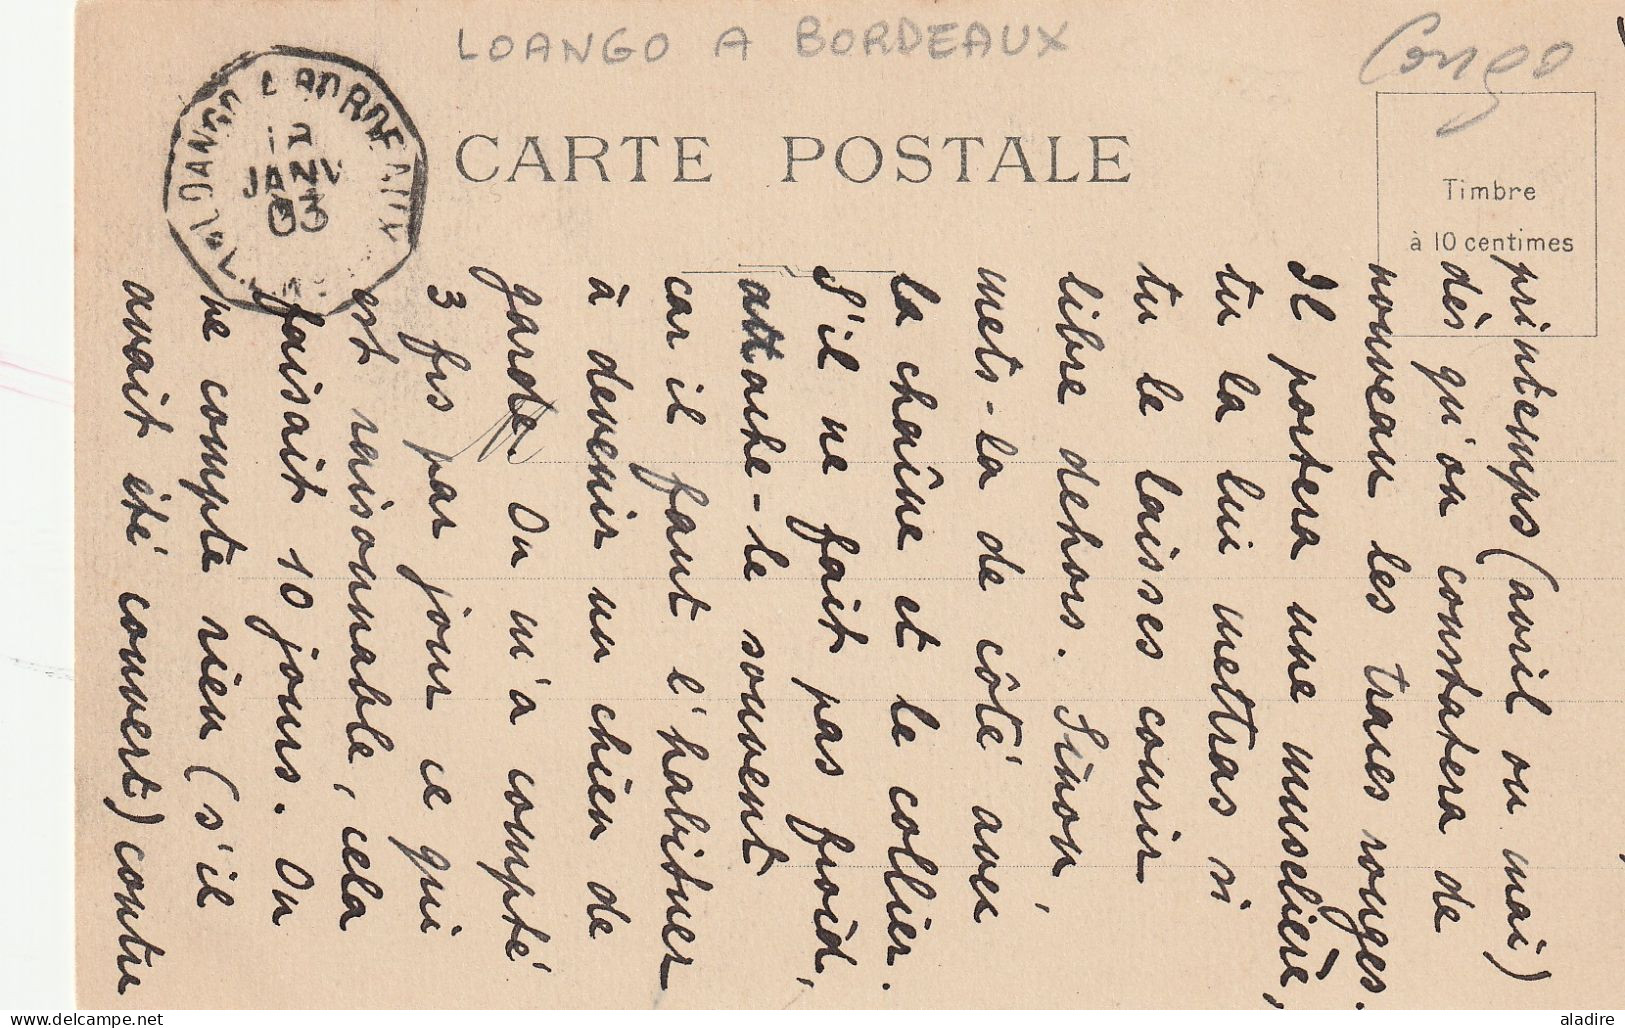 LOANGO A BORDEAUX
Congo
LOANGO A BORDEAUX
JANV
03
CARTE POSTALE
Timbre
à 10 centimes
printemps (avril ou mai)
dès qu'on constatera de
nouveau les traces rouges.
Il portera une muselière,
tu la lui mettras si
tu le laisses courir
libre dehors. Sinon,
mets-la de côté avec
la chaîne et le collier.
S'il ne fait pas froid,
attache-le souvent
car il faut l'habituer
à devenir un chien de
garde. On m'a compté
3 frs par jour ce qui
est raisonnable, cela
faisait 10 jours. On
ne compte rien (s'il
avait été couvert) contre
delcampe.net
aladire